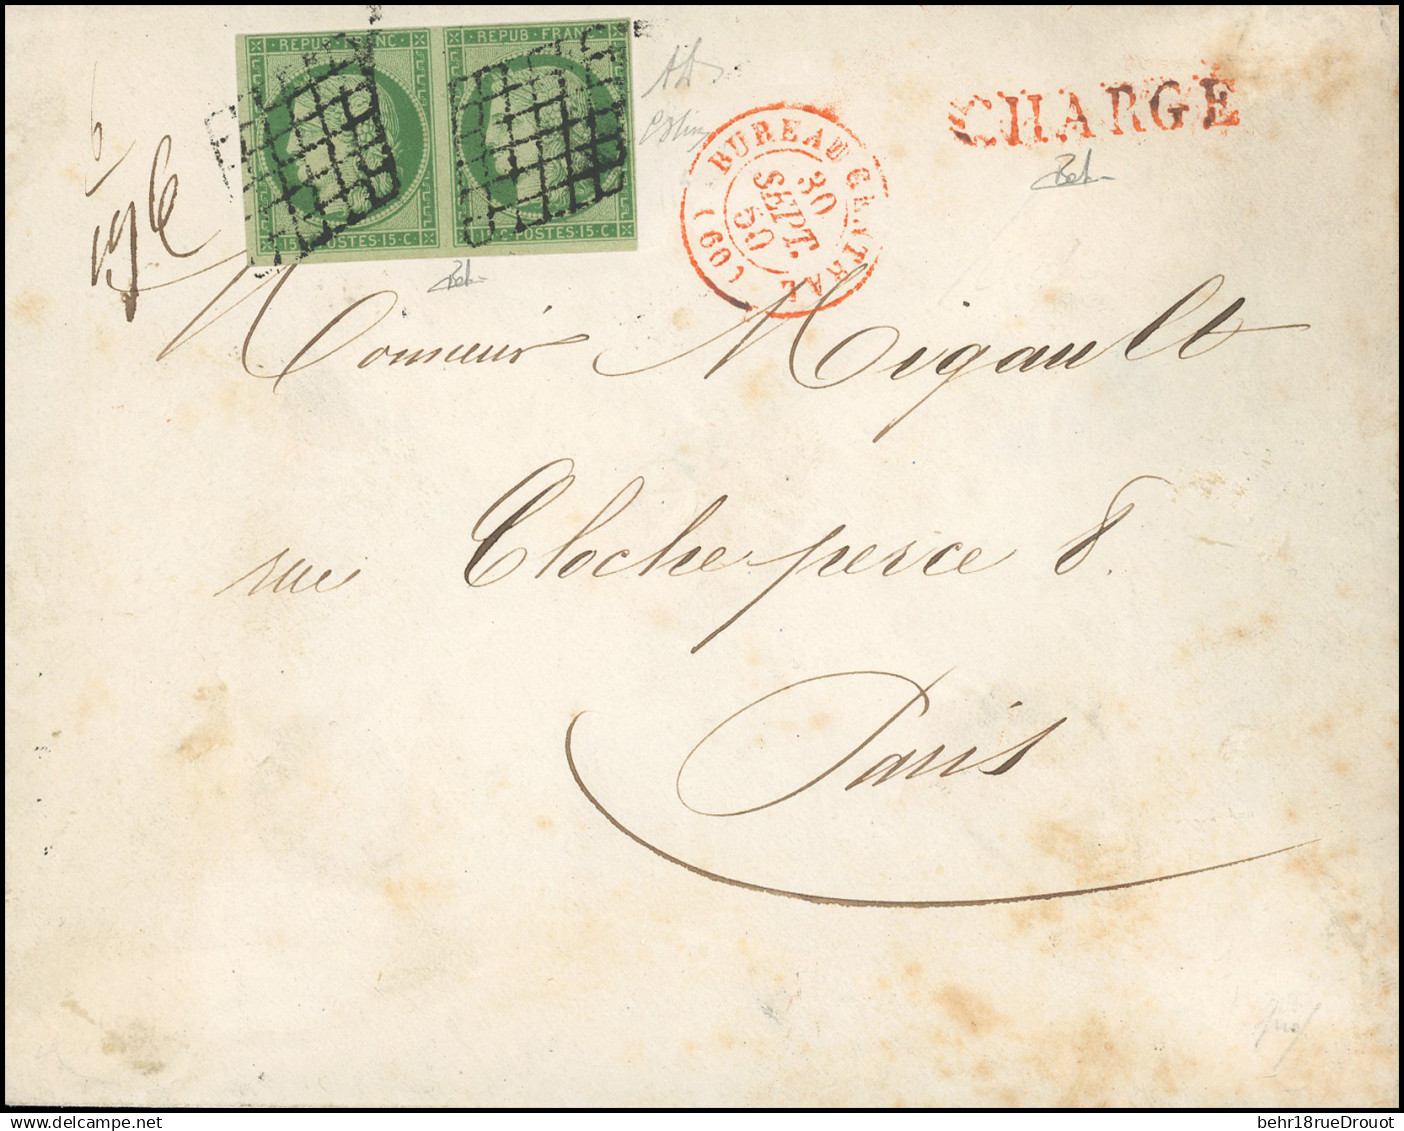 REPUB · FRANC REPUB · FRANC
15 · C · POSTES · 15 · C 15 · C · POSTES · 15 · C
BUREAU CENTRAL
(60)
30
SEPT.
50
CHARGE
196
Behr
Behr
Monsieur Migault
rue Cloche perce 8.
Paris
behr18rueDrouot